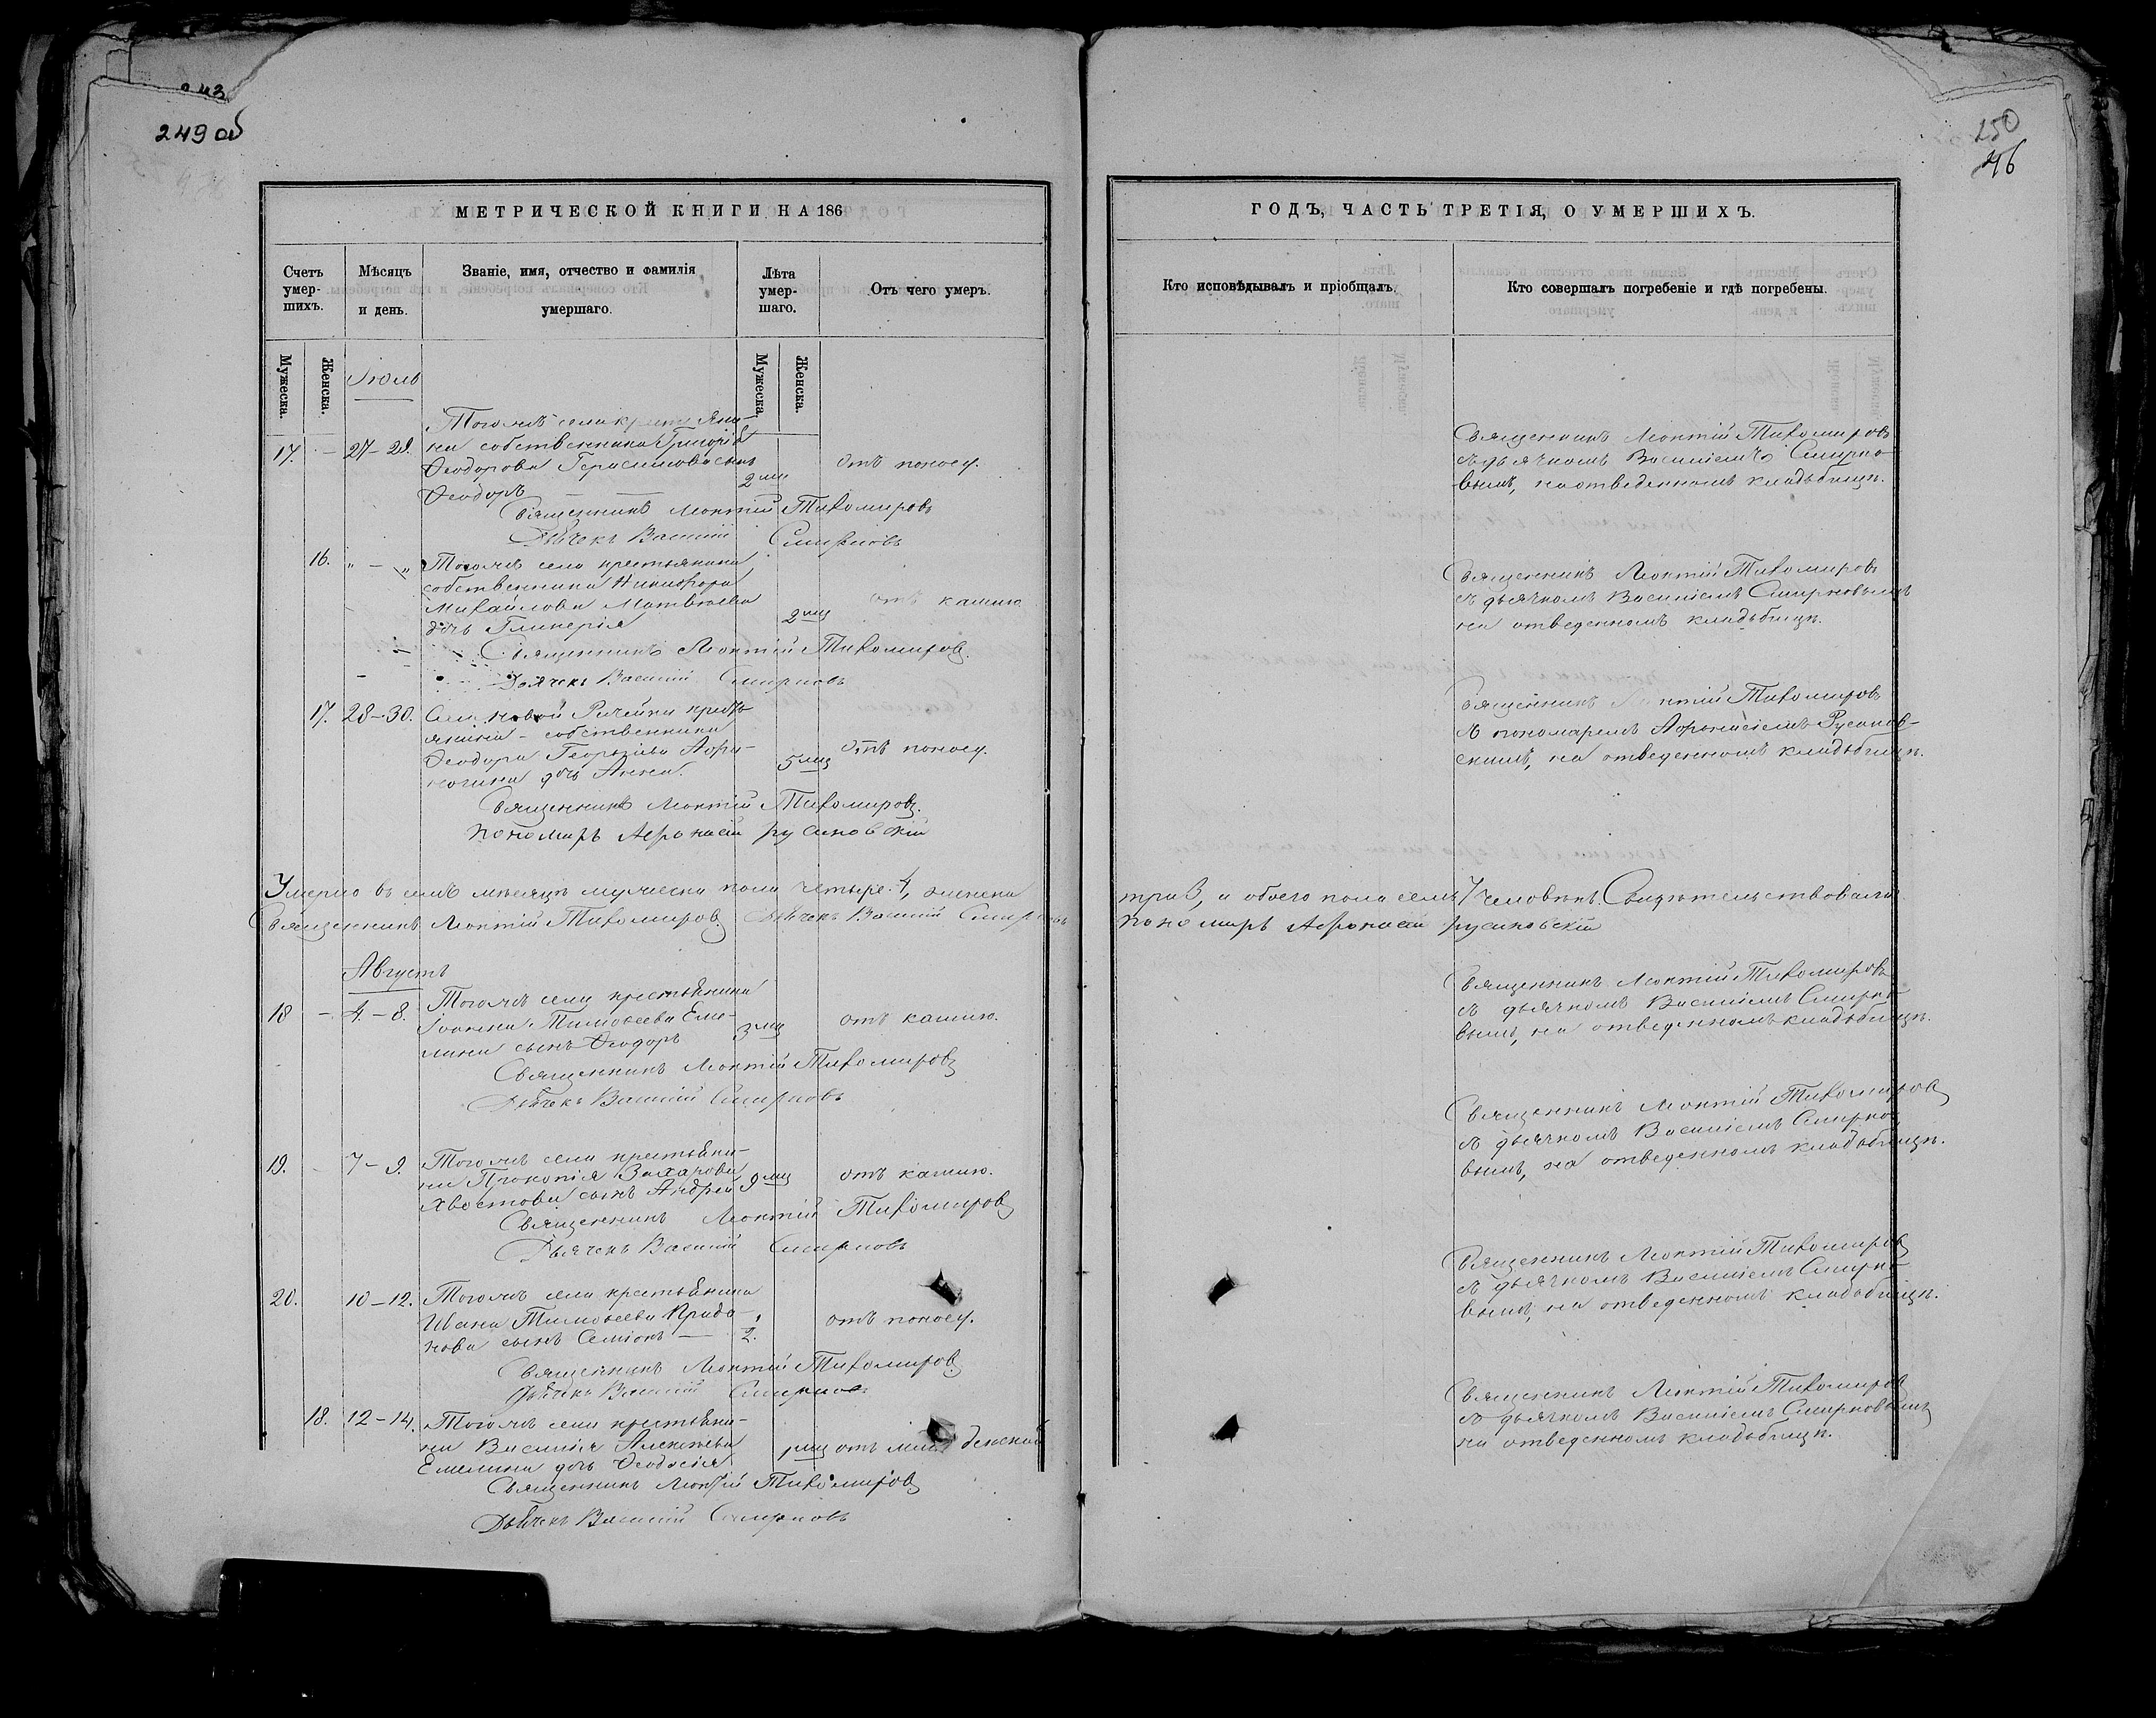 249 об
250
46
МЕТРИЧЕСКОЙ КНИГИ НА 186
Счетъ умер-шихъ.
Мѣсяцъ и день.
Званіе, имя, отчество и фамилія умершаго.
Лѣта умер-шаго.
Отъ чего умеръ.
Мужеска.
Женска.
Мужеска.
Женска.
Іюль
Тогожъ села крестьяни-
17. – 27–28. на собственника Григорія
Ѳеодорова Герасимова сынъ 2 мц отъ поносу.
Ѳеодоръ
Священникъ Леонтій Тихомировъ
Дьячекъ Василій Смирновъ
16. „ – „ Тогожъ села крестьянина
собственника Никифора
Михайлова Матвѣева отъ кашлю
дочь Гликерія 2 мц
Священникъ Леонтій Тихомировъ
Дьячекъ Василій Смирновъ
17. 28–30. Села Новой Рачейки кресть-
янина-собственника
Ѳеодора Георгіева Афи- отъ поносу.
ногина дочь Анна. 5 мц
Священникъ Леонтій Тихомировъ.
пономарь Афонасій русановскій
Умерло въ семъ мѣсяцѣ мужеска пола четыре 4, женска
Священникъ Леонтій Тихомировъ Дьячекъ Василій Смирновъ
Августъ
Тогожъ села крестьянина
18 – 4.–8. Іоанна Тимоѳеева Еме- 3 мц отъ кашлю.
лина сынъ Ѳеодоръ
Священникъ Леонтій Тихомировъ
Дьячекъ Василій Смирновъ
19. – 7–9. Тогожъ села крестьяни-
на Прокопія Захарова 9 мц отъ кашлю.
Хвостова сынъ Андрей
Священникъ Леонтій Тихомировъ
Дьячекъ Василій Смирновъ
20. 10–12. Тогожъ села крестьянина
Ивана Тимоѳеева отъ поносу.
нова сынъ Семіонъ 2.
Священникъ Леонтій Тихомировъ
Дьячекъ Василій Смирновъ
18. 12–14. Тогожъ села крестьяни-
на Василія Алексѣева 1 мц отъ младенской
Емелина дочь Ѳеодосія
Священникъ Леонтій Тихомировъ
Дьячекъ Василій Смирновъ
ГОДЪ, ЧАСТЬ ТРЕТІЯ, О УМЕРШИХЪ.
Кто исповѣдывалъ и пріобщалъ.
Кто совершалъ погребеніе и гдѣ погребены.
Священникъ Леонтій Тихомировъ
съ дьячкомъ Василіемъ Смирно-
вымъ, на отведенномъ кладьбищѣ.
Священникъ Леонтій Тихомировъ
съ дьячкомъ Василіемъ Смирновымъ
на отведенномъ кладьбищѣ.
Священникъ Леонтій Тихомировъ
съ пономаремъ Афонасіемъ Русанов-
скимъ, на отведенномъ кладьбищѣ.
три 3, и обоего пола семь 7 человѣкъ. Свидѣтельствовали
пономарь Афонасій русановскій
Священникъ Леонтій Тихомировъ
съ дьячкомъ Василіемъ Смирно-
вымъ, на отведенномъ кладьбищѣ.
Священникъ Леонтій Тихомировъ
съ дьячкомъ Василіемъ Смирно-
вымъ, на отведенномъ кладьбищѣ.
Священникъ Леонтій Тихомировъ
съ дьячкомъ Василіемъ Смирно-
вымъ, на отведенномъ кладьбищѣ.
Священникъ Леонтій Тихомировъ
съ дьячкомъ Василіемъ Смирновымъ
на отведенномъ кладьбищѣ.